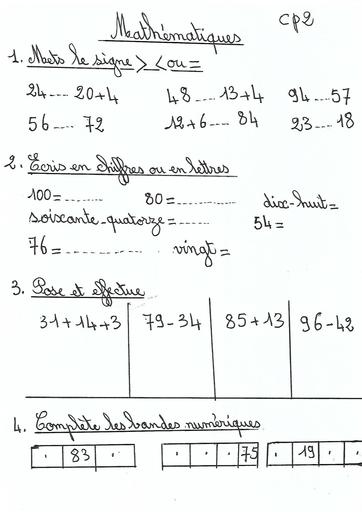 Mathématiques
CP2
1. Mets le signe > < ou =
24 .... 20+4 48 .... 13+4 94 .... 57
56 .... 72 12+6 .... 84 23 .... 18
2. Écris en chiffres ou en lettres
100 = ........ 80 = ........... dix-huit =
soixante-quatorze = ....... 54 =
76 = ............ vingt =
3. Pose et effectue
31+14+3 79-34 85+13 96-42
4. Complète les bandes numériques
. 83 . . . . 75 . 19 . .